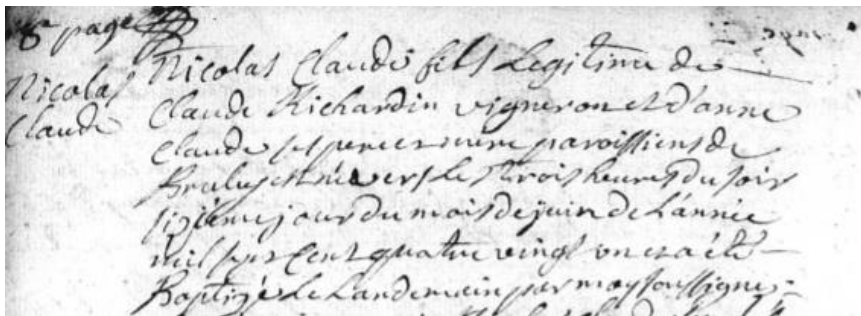 page
Nicolas Claude fils Legitime de
Nicolas
Claude Richardin vigneron et d'anne
Claude
Claude ses pere et mere paroissiens de
est né vers les trois heures du soir
sixième jour du mois de juin de L'année
mil six Cent quatre vingt un et a été
Baptizé Le Landemain par moy soussigné